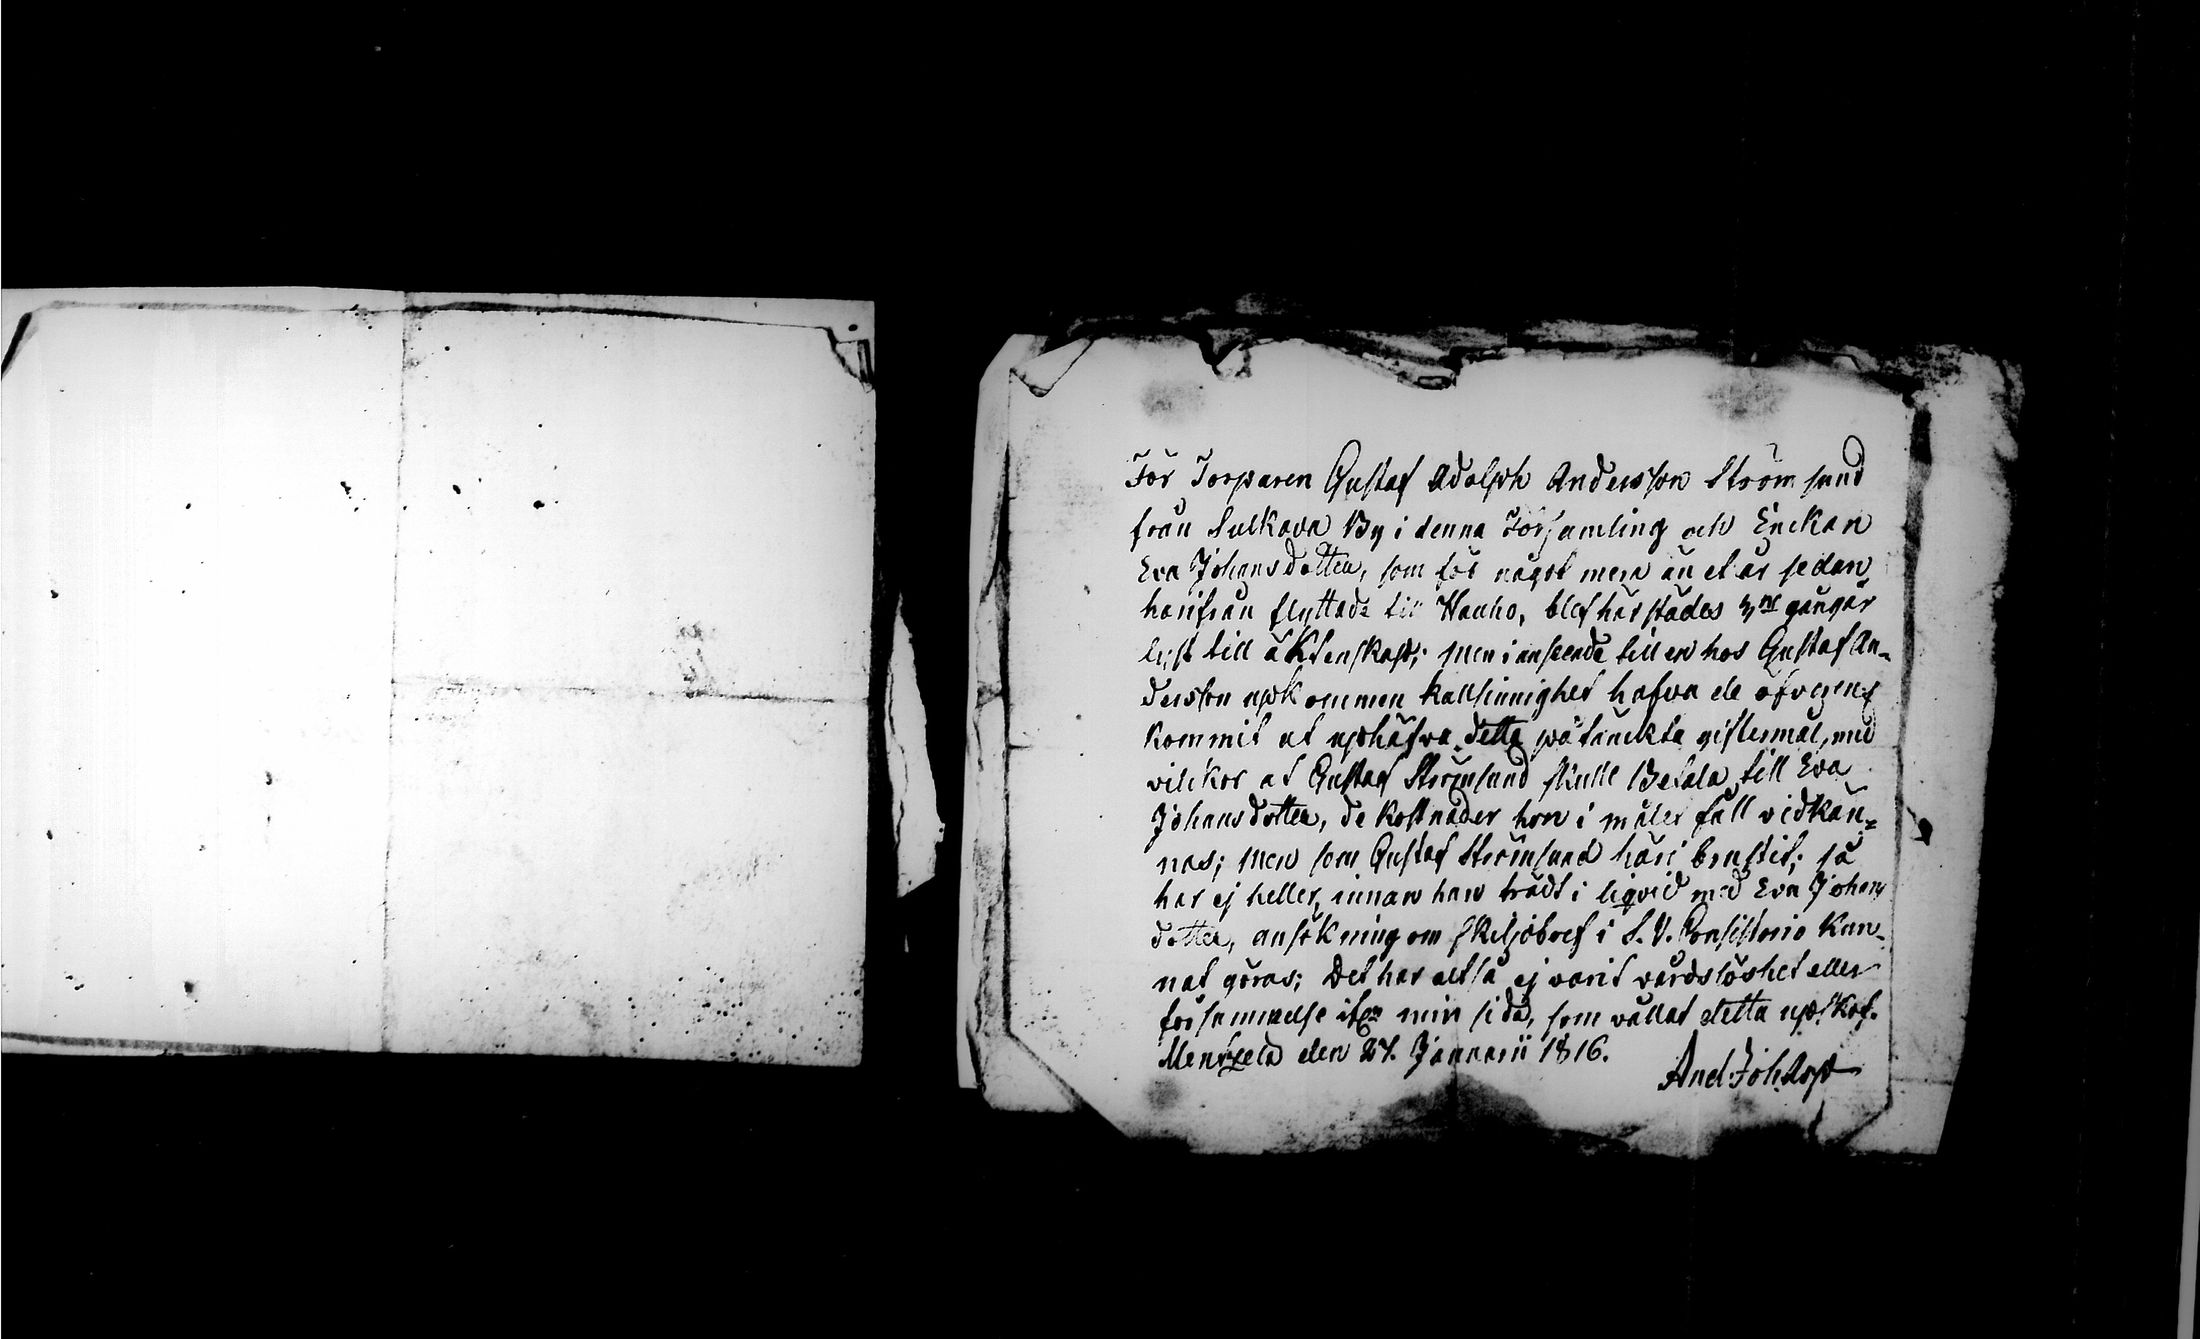 För Torparen Gustaf Adolph Andersson Strömsund
från Sulkava By i denna Församling och Enckan
Eva Johansdotter, som för något mera än et år sedan
härifrån flyttade till Hauho, blef härstädes 3ne gångar
lyst till äktenskap; men i anseende till en hos Gustaf An-
dersson upkommen kallsinnighet hafva de öfverens-
kommit at uphäfva detta påtänckta giftermål, med
vilckor at Gustaf Strömsund skulle Betala till Eva
Johansdotter, de kostnader hon i måler fått vidkän=
nas; men som Gustaf Strömsund häri brustit; så
har ej heller, innan han trädt i liqvid med Eva Johans
dotter, ansökning om skiljobref i S. V. Consistorio Kun-
nat göras; Det har altså ej varit vårdslöshet eller
försummelse ifrån min sida, som vållat detta upskof.
den 27. Januarii 1816.
And. Joh.